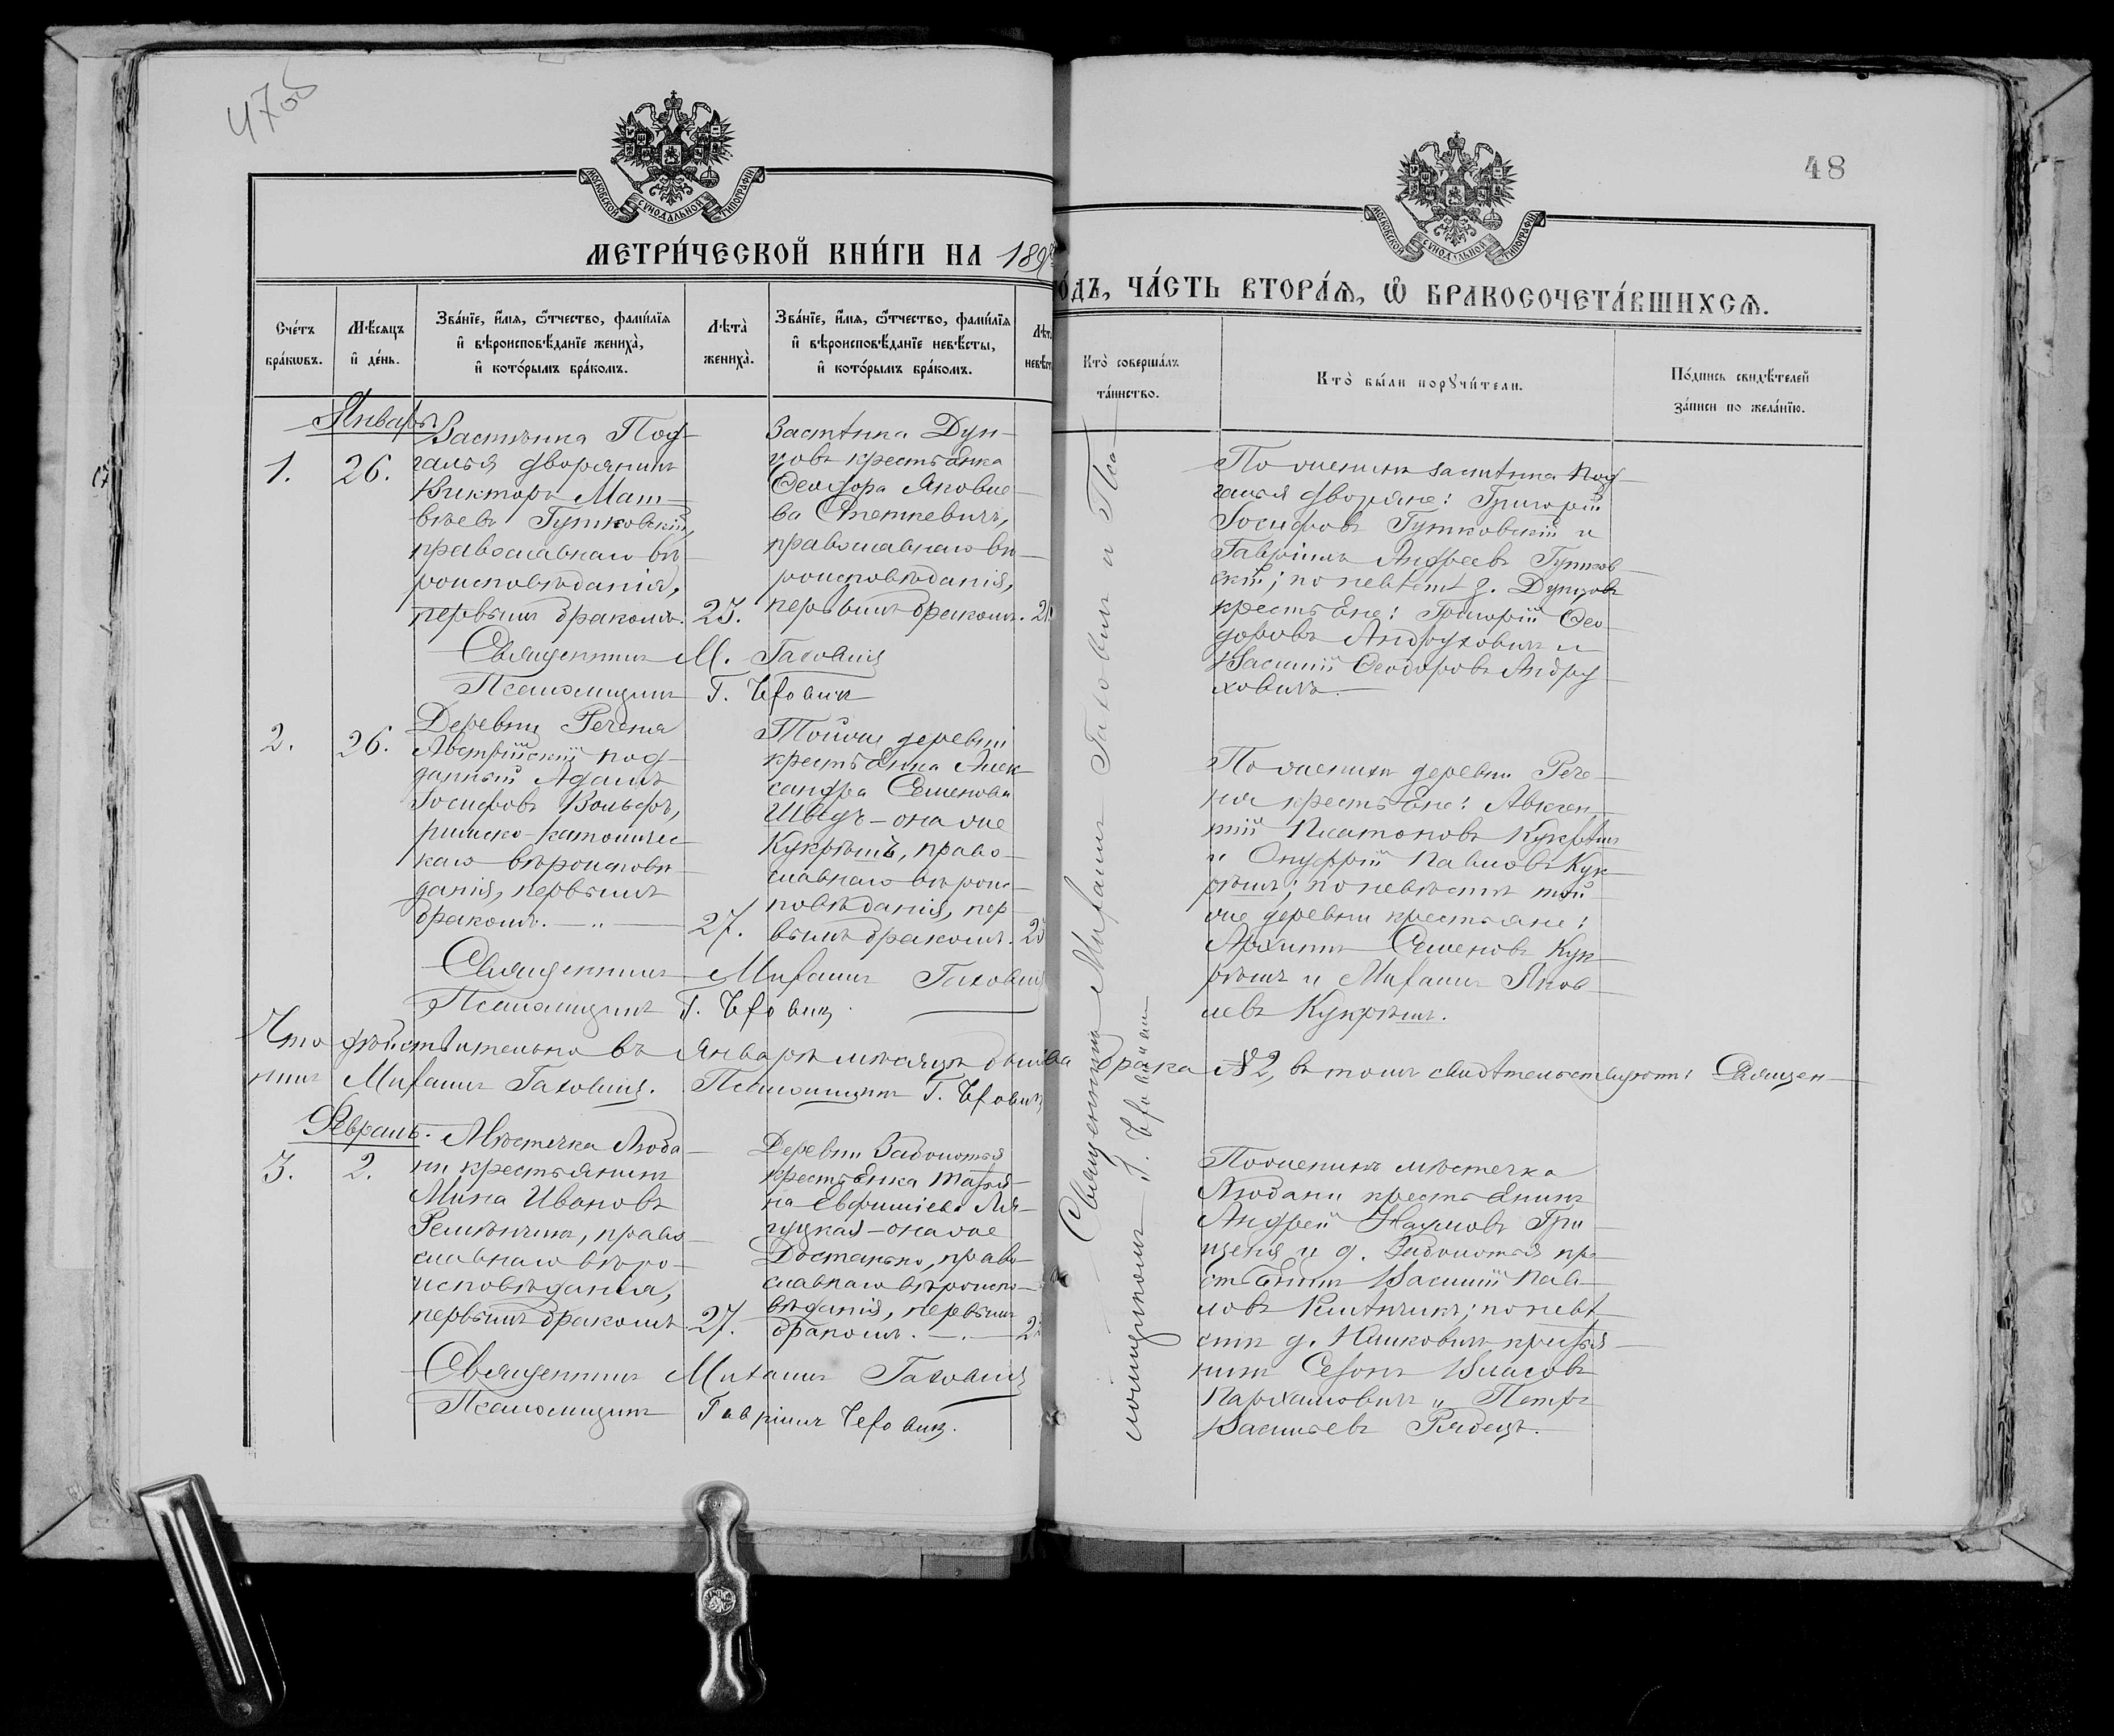 47об
48
МОСКОВСКОЙ СѴНОДАЛЬНОЙ ТИПОГРАФІИ
МОСКОВСКОЙ СѴНОДАЛЬНОЙ ТИПОГРАФІИ
МЕТРИ́ЧЕСКОЙ КНИ́ГИ НА 189
О́ДЪ, ЧА́СТЬ ВТОРА́Я, Ѽ БРАКОСОЧЕТА́ВШИХСЯ.
Сче́тъ бра́ковъ.
Мѣ́сяцъ и де́нь.
Зва́нїе, и́мя, ѻ҆́тчество, фами́лїя и вѣроисповѣ́данїе жениха̀, и кото́рымъ бра́комъ.
Лѣта̀ жениха̀.
Зва́нїе, и́мя, ѻ҆́тчество, фами́лїя и вѣроисповѣ́данїе невѣ́сты, и кото́рымъ бра́комъ.
Лѣт невѣст
Кто̀ соверша́лъ та́инство.
Кто̀ бы́ли порꙋчи́тели.
По́дпись свидѣ́телей за́писи по жела́нїю.
Январь
1.
26.
Застѣнка Под-
галья дворянинъ
Викторъ Мат-
вѣевъ Гутковскій,
православнаго вѣ-
роисповѣданія,
первымъ бракомъ.
Застѣнка Дун-
цовъ крестьянка
Ѳеодора Яковле-
ва
православнаго вѣ-
роисповѣданія,
первымъ бракомъ.
Священникъ М. Гахович
Псаломщикъ Г.
По женихѣ застѣнка Под-
галья дворяне: Григорій
Іосифовъ Гутковскій и
Гавріилъ Андреевъ Гутков-
скій; по невѣстѣ з. Дунцовъ
крестьяне: Григорій Ѳео-
доровъ Андруховичъ и
Василій Ѳеодоровъ Андру-
ховичъ.
2.
26.
Деревни Реченя
Австрійскій под-
данный Адамъ
Іосифовъ Вольфъ,
римско-католичес-
каго вѣроисповѣ-
данія, первымъ
бракомъ.
27.
Тойже деревни
крестьянка Алек-
сандра Семенова
Шведъ-она же
Кукрѣшъ, право-
славнаго вѣроис-
повѣданія, пер-
вымъ бракомъ.
Священникъ Михаилъ Гахович
Псаломщикъ Г.
По женихѣ деревни Рече-
ня крестьяне: Авксен-
тій Платоновъ Кукрѣшъ
и Онуфрій Павловъ Кук-
рѣшъ; по невѣстѣ той-
же деревни крестьяне:
Архипъ Семеновъ Кук-
рѣшъ и Михаилъ Яков-
левъ Кукрѣшъ.
Что дѣйствительно въ Январѣ мѣсяцѣ было два брака №2, въ томъ свидѣтельствуютъ: Священ-
никъ Михаилъ Гахович. Псаломщикъ Г.
Февраль.
3.
2.
Мѣстечка Люба-
ни крестьянинъ
Мина Ивановъ
право-
славнаго вѣро-
исповѣданія,
первымъ бракомъ.
27.
Деревни Заболотья
крестьянка Марья-
на Евфимїева Ля-
гуцкая-она же
Достанько, право-
славнаго вѣроиспо-
вѣданія, первымъ
бракомъ.
Священникъ Михаилъ Гахович
Псаломщикъ Гавріилъ
По женихѣ мѣстечка
Любани крестьянинъ
Андрей Наумовъ Гри-
щеня и д. Заболотья кре-
стьянинъ Василій Пав-
ловъ; по невѣ-
стѣ д. крестья-
нинъ Власовъ
Пархамовичъ и Петръ
Васильевъ
Священникъ Михаилъ Гаховичъ и Пса-
ломщикомъ Г.